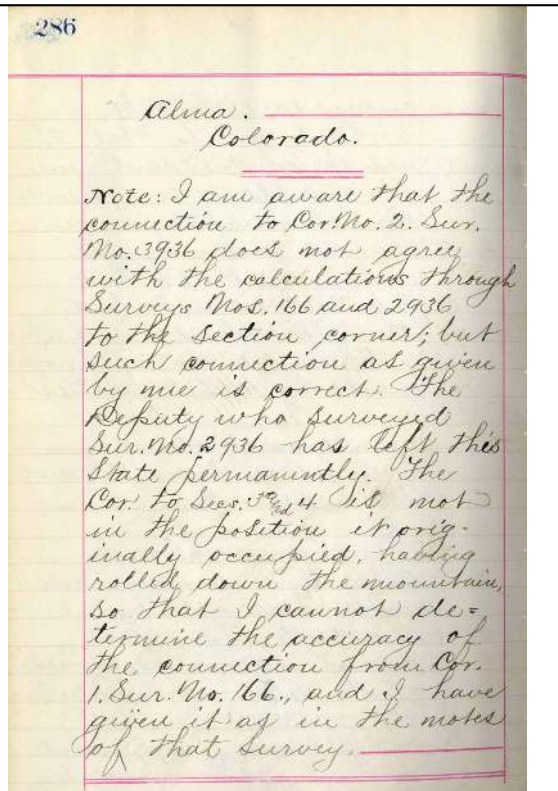 286
Alma.
Colorado.
Note: I am aware that the
connection to Cor. No. 2. Sur.
No. 3936 does not agree
with the calculations through
Surveys Nos. 166 and 2936
to the section corner; but
such connection as given
by me is correct. The
Deputy who surveyed
Sur. No. 2936 has left this
State permanently. The
Cor. to Secs. 3 and 4 is not
in the position it orig-
inally occupied, having
rolled down the mountain,
so that I cannot de=
termine the accuracy of
the connection from Cor.
1. Sur. No. 166., and I have
given it as in the notes
of that survey.